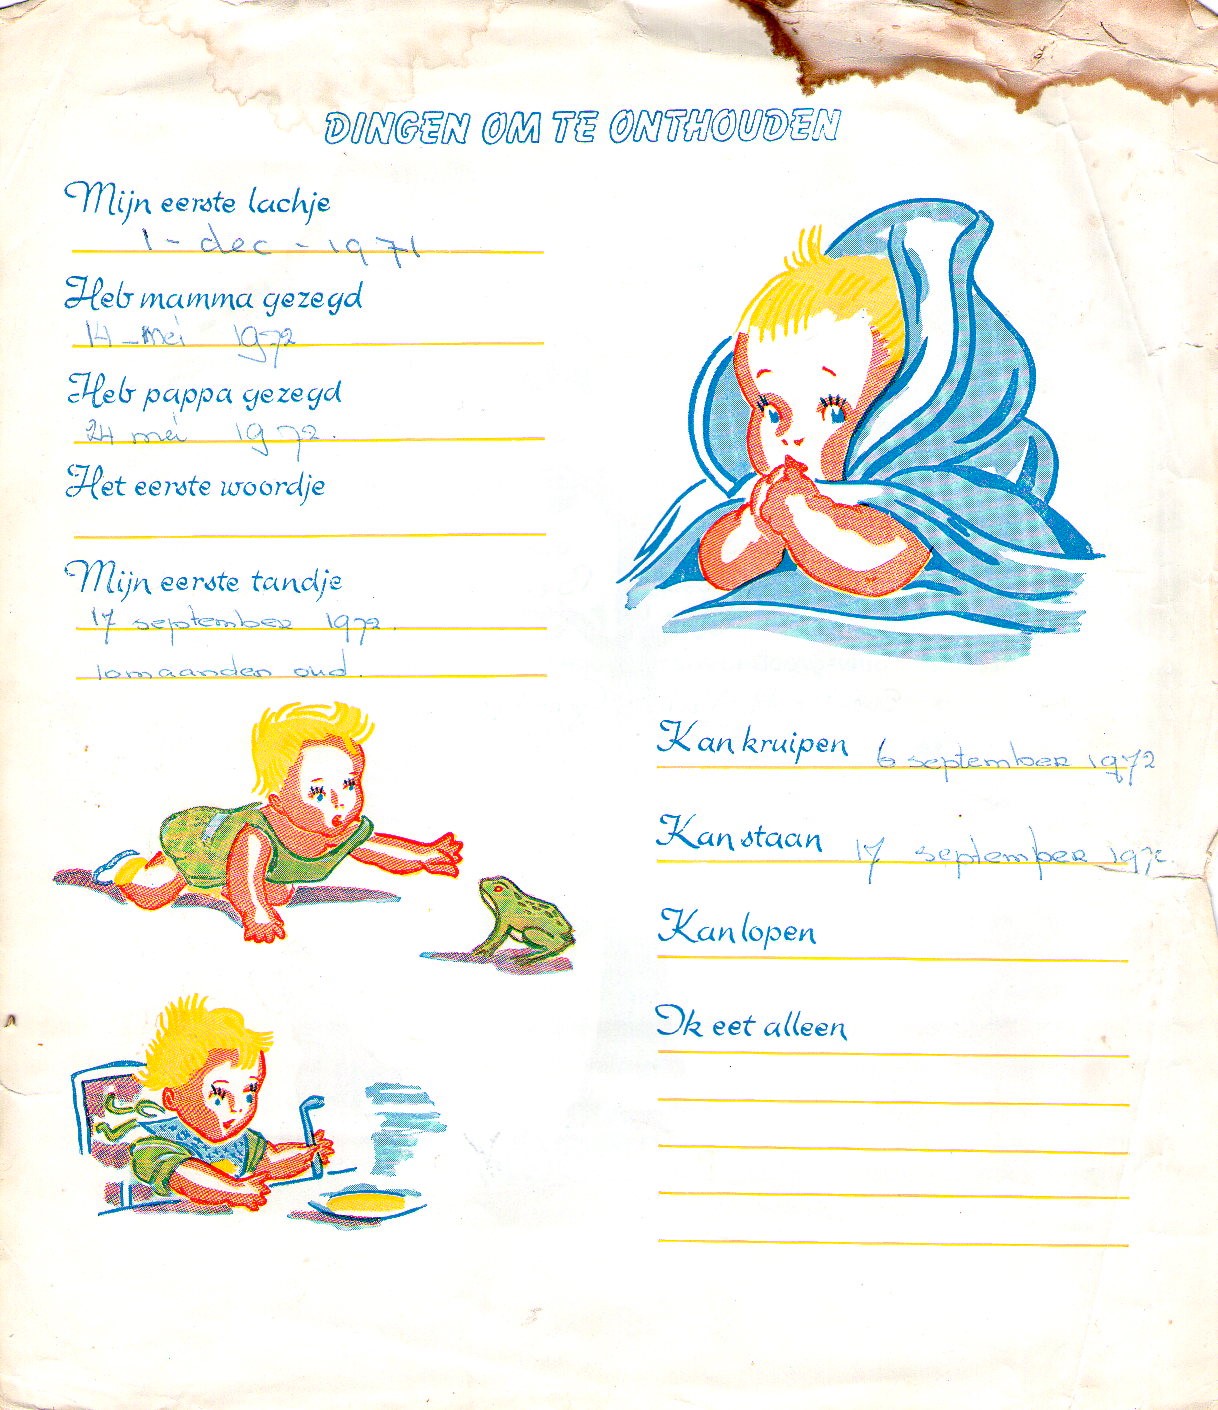 DINGEN OM TE ONTHOUDEN
Mijn eerste lachje
1 - dec - 1971
Heb mamma gezegd
14 - mei 1972
Heb pappa gezegd
24 mei 1972.
Het eerste woordje
Mijn eerste tandje
17 september 1972.
10 maanden oud.
Kan kruipen 6 september 1972
Kan staan 17 september 1972
Kan lopen
Ik eet alleen